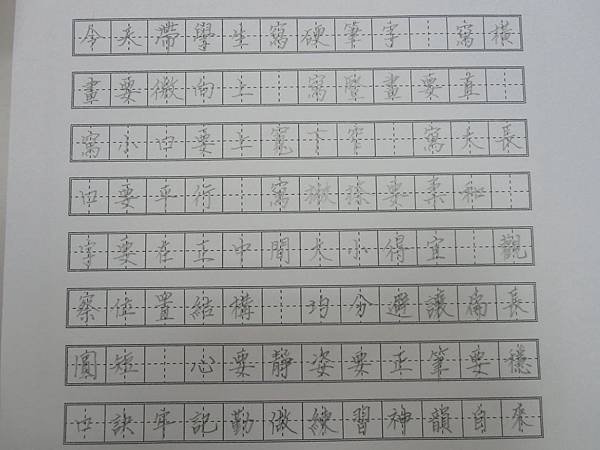 今天帶學生寫硬筆字 寫橫
畫要微向上 寫豎畫要直
寫小口要上寬下窄 寫大長
口要平行 寫撇捺要柔和
字要在正中間大小得宜 觀
察位置結構 均分避讓扁長
圓短 心要靜姿要正筆要穩
口訣牢記勤做練習神韻自來